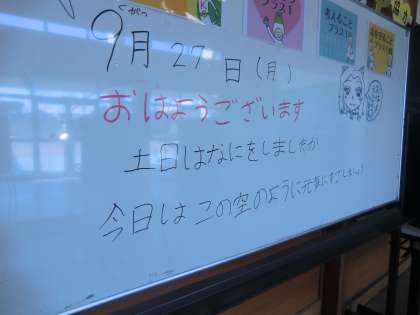 プラス1
ちえること
プラス1
プラス1
くがつ
9月27日(月)
おはようございます
土日はなにをしましたか
今日はこの空のように元気にすごしましょう!